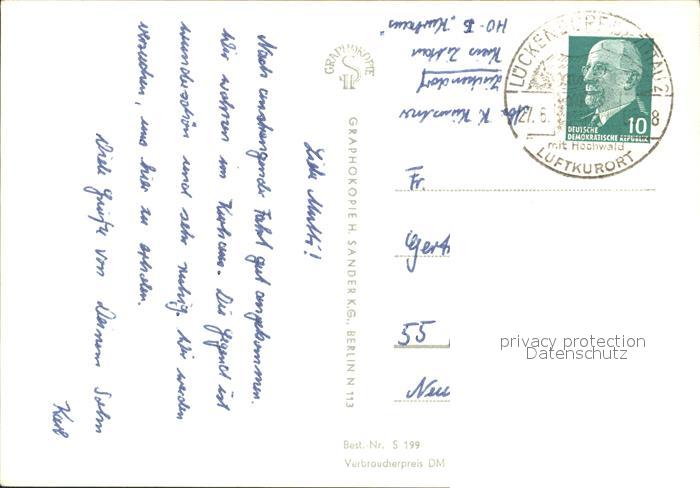 Liebe Mutti!
Nach anstrengender Fahrt gut angekommen.
Wir wohnen im Kurhaus. Die Gegend ist
wunderschön und sehr ruhig. Wir werden
versuchen, uns hier zu erholen.
Viele Grüße von Deinem Sohn
Karl
GRAPHOKOPIE
GRAPHOKOPIE H. SANDER K.G., BERLIN N 113
Best.-Nr. S 199
Verbraucherpreis DM
K.
Lückendorf
Kreis Zittau
HO-G "Kurhaus"
LÜCKENDORF
27. 6.
8
mit Hochwald
LUFTKURORT
10
DEUTSCHE
DEMOKRATISCHE REPUBLIK
Fr.
Gert
55
Neu
privacy protection
Datenschutz